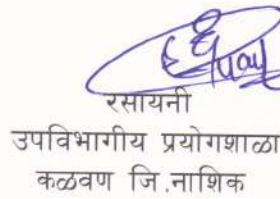 रसायनी
उपविभागीय प्रयोगशाळा
कळवण जि.नाशिक